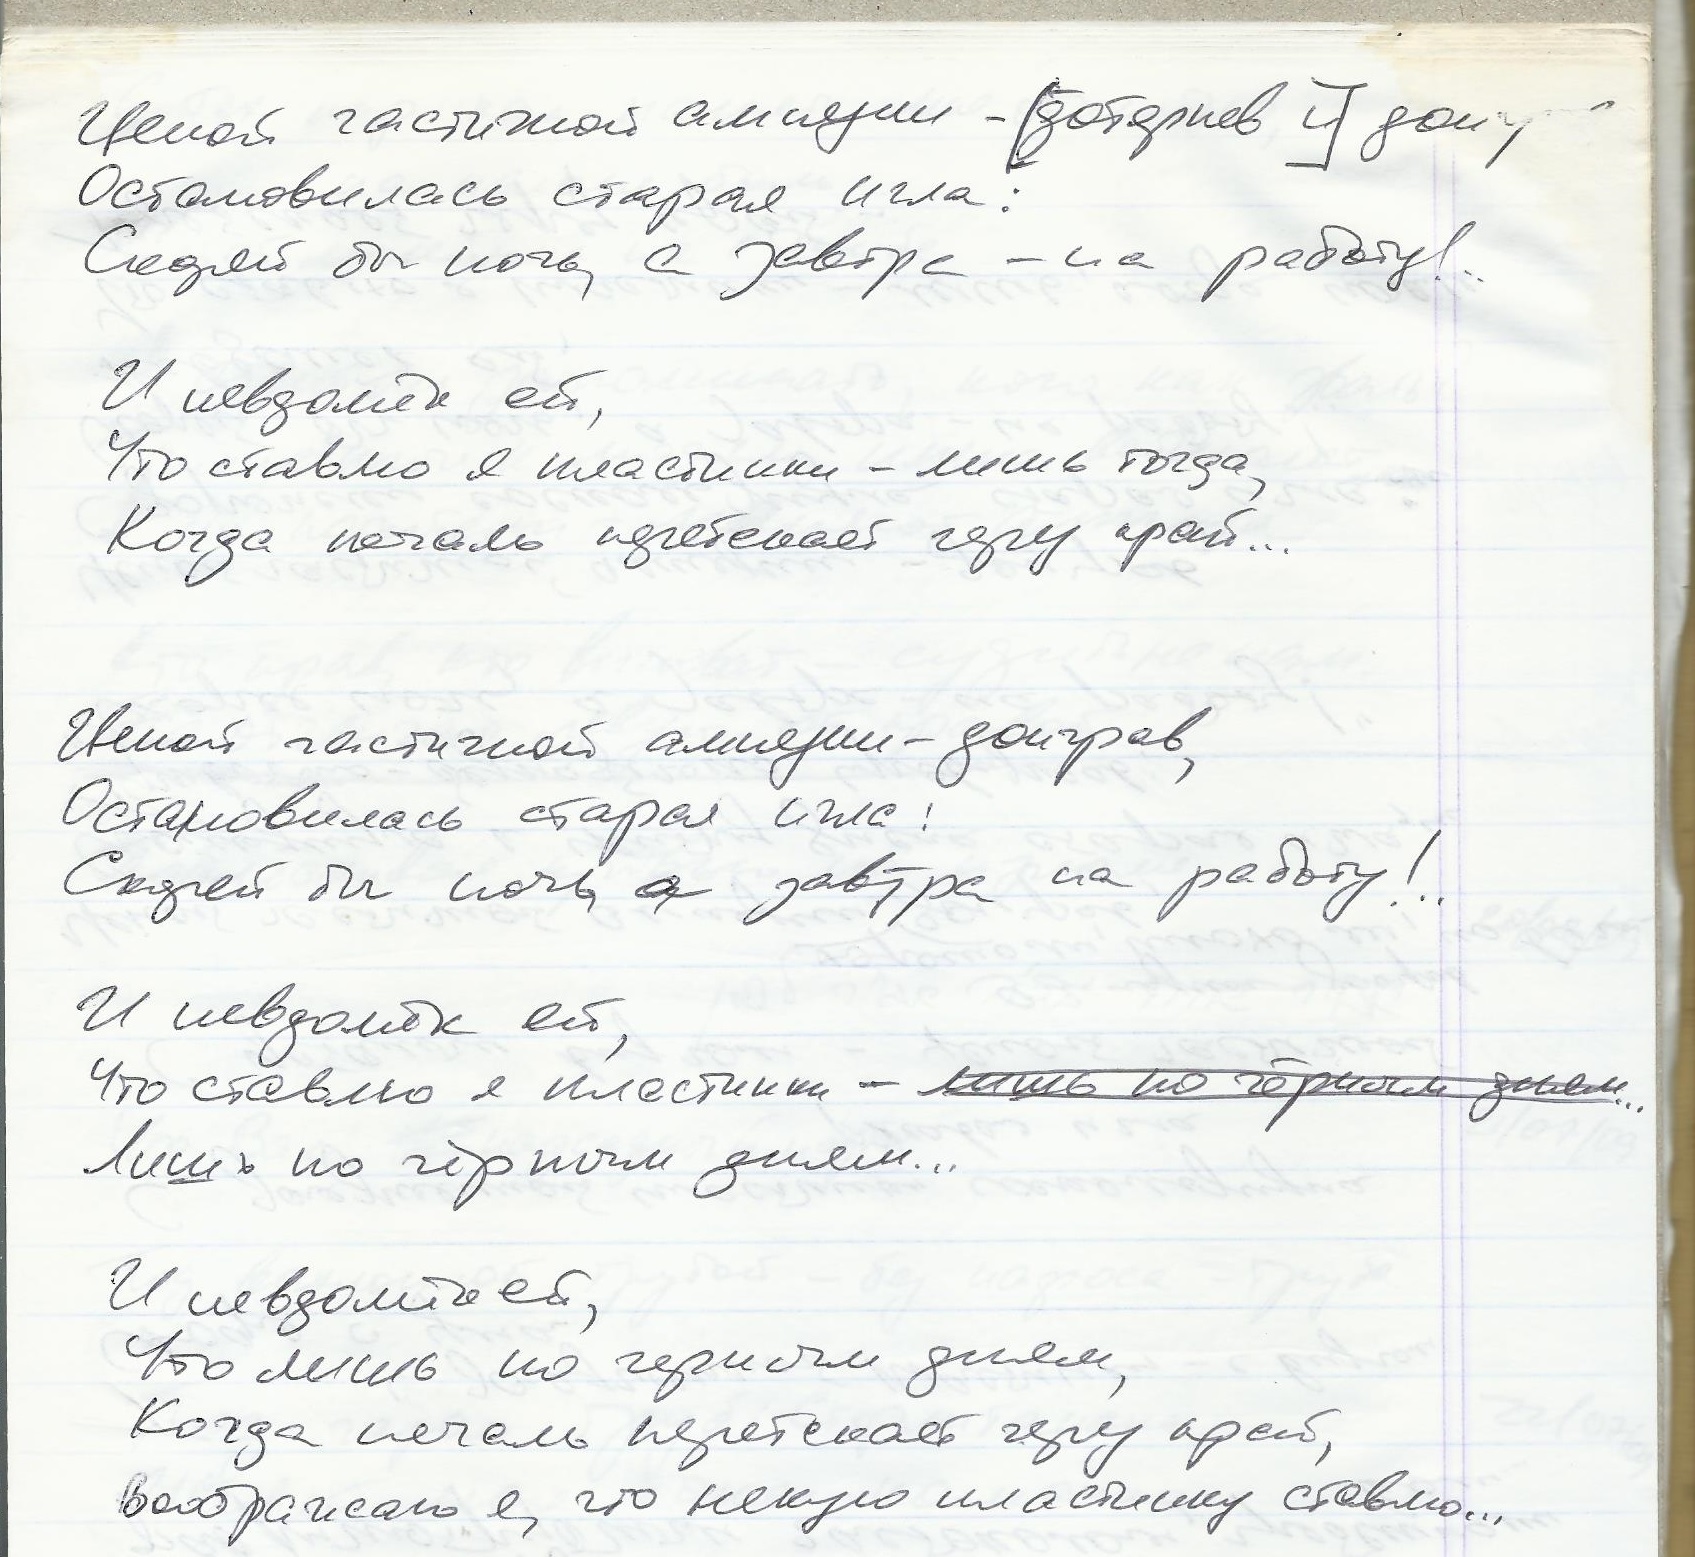 Ценой частичной амнезии – [дотерпев и] доиг
Остановилась старая игла:
Скорей бы ночь, а завтра – на работу!..
И невдомёк ей,
Что ставлю я пластинки – лишь тогда,
Когда печаль перетекает через край...
Ценой частичной амнезии – доиграв,
Остановилась старая игла:
Скорей бы ночь, а завтра на работу!..
И невдомёк ей,
Что ставлю я пластинки – лишь по чёрным дням...
Лишь по чёрным дням...
И невдомёк ей,
Что лишь по черным дням,
Когда печаль перетекает через край,
Воображаю я, что некую пластинку ставлю...